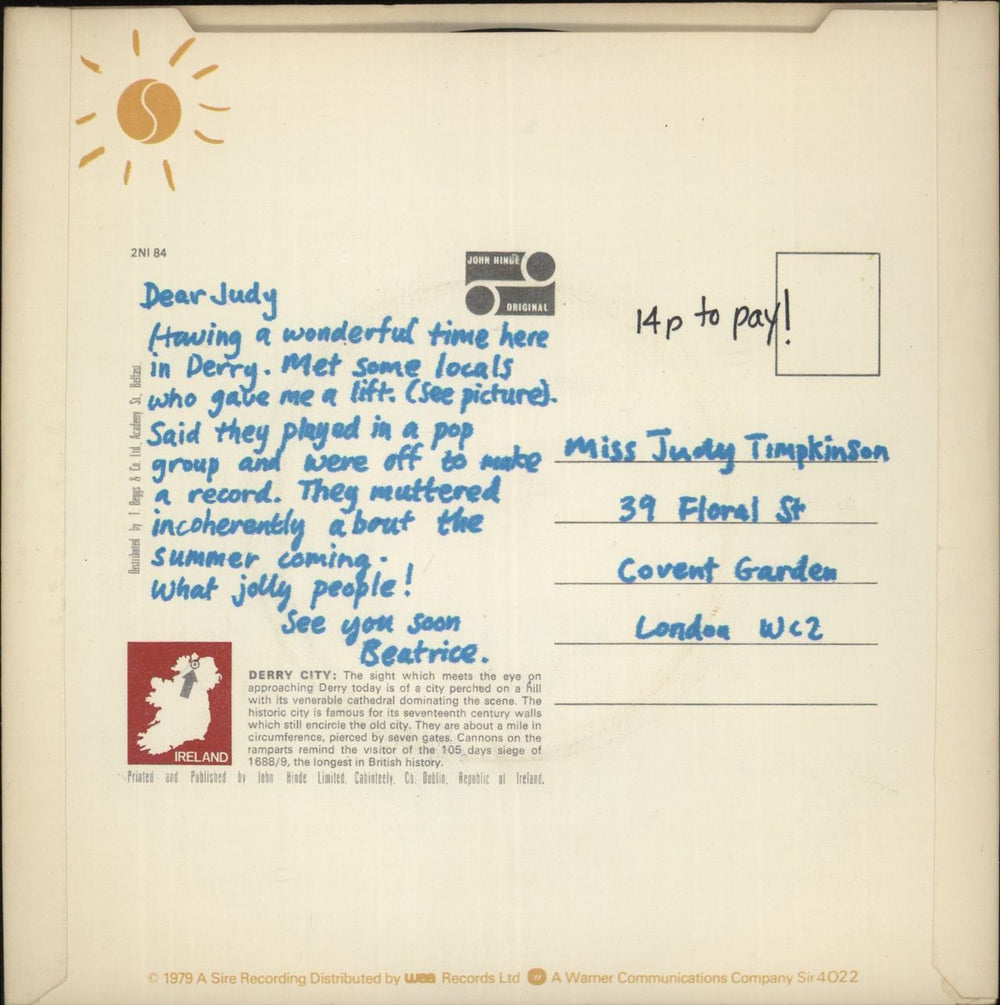 2NI 84
JOHN HINDE
ORIGINAL
Dear Judy
Having a wonderful time here
in Derry. Met some locals
who gave me a lift. (See picture).
Said they played in a pop
group and were off to make
a record. They muttered
incoherently about the
summer coming.
What jolly people!
See you soon
Beatrice.
Distributed by T. Beggs & Co. Ltd. Academy St., Belfast.
14p to pay!
Miss Judy Timpkinson
39 Floral St
Covent Garden
London WC2
IRELAND
DERRY CITY: The sight which meets the eye on
approaching Derry today is of a city perched on a hill
with its venerable cathedral dominating the scene. The
historic city is famous for its seventeenth century walls
which still encircle the old city. They are about a mile in
circumference, pierced by seven gates. Cannons on the
ramparts remind the visitor of the 105 days siege of
1688/9, the longest in British history.
Printed and Published by John Hinde Limited, Cabinteely, Co. Dublin, Republic of Ireland.
© 1979 A Sire Recording Distributed by wea Records Ltd A Warner Communications Company Sir 4022